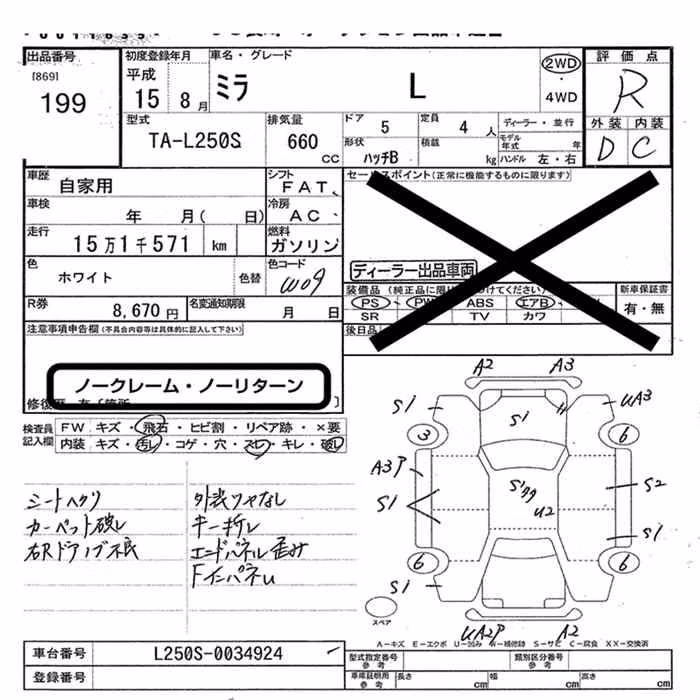 出品番号
[869]
199
初度登録年月
平成
15年8月
車名・グレード
ミラ L
2WD
・
4WD
評価点
R
外装 内装
D C
型式
TA-L250S
排気量
660
CC
ドア 5
定員 4 人
ディーラー・並行
形状
ハッチB
積載
kg
モデル年式
年
ハンドル 左・右
車歴
自家用
シフト
FAT、
セールスポイント(正常に機能するものに限ります)
車検
年 月( 日)
冷房
AC、
走行
15万1千571 km
燃料
ガソリン
ディーラー出品車両
色
ホワイト
色替
色コード
W09
装備品 (純正品に限り つけてください)
新車保証書
PS PW ABS エアB
有・無
SR TV カワ
R券
8,670 円
名変通知期限
月 日
後日品
注意事項申告欄(不具合内容等は具体的に記入して下さい)
ノークレーム・ノーリターン
修復歴
検査員
記入欄
FW キズ・飛石・ヒビ割・リペア跡・×要
内装 キズ・汚レ・コゲ・穴・スレ・キレ・破レ
シートヘタリ
カーペット破レ
右Rドアノブ不良
外装ツヤなし
キー折レ
エンドパネル歪み
FインパネU
A2 A3
S1 S1 UA3
3 6
A3P
S1 S1 U2 S2
S1
6 6
S1 S1
UA2P A2
スペア
A-キズ E-エクボ U-凹み W-補修跡 S-サビ C-腐食 XX-交換済
車台番号
L250S-0034924
登録番号
型式指定番号
参考
類別区分番号
参考
車庫証明用
参考
長さ cm
幅 cm
高さ cm